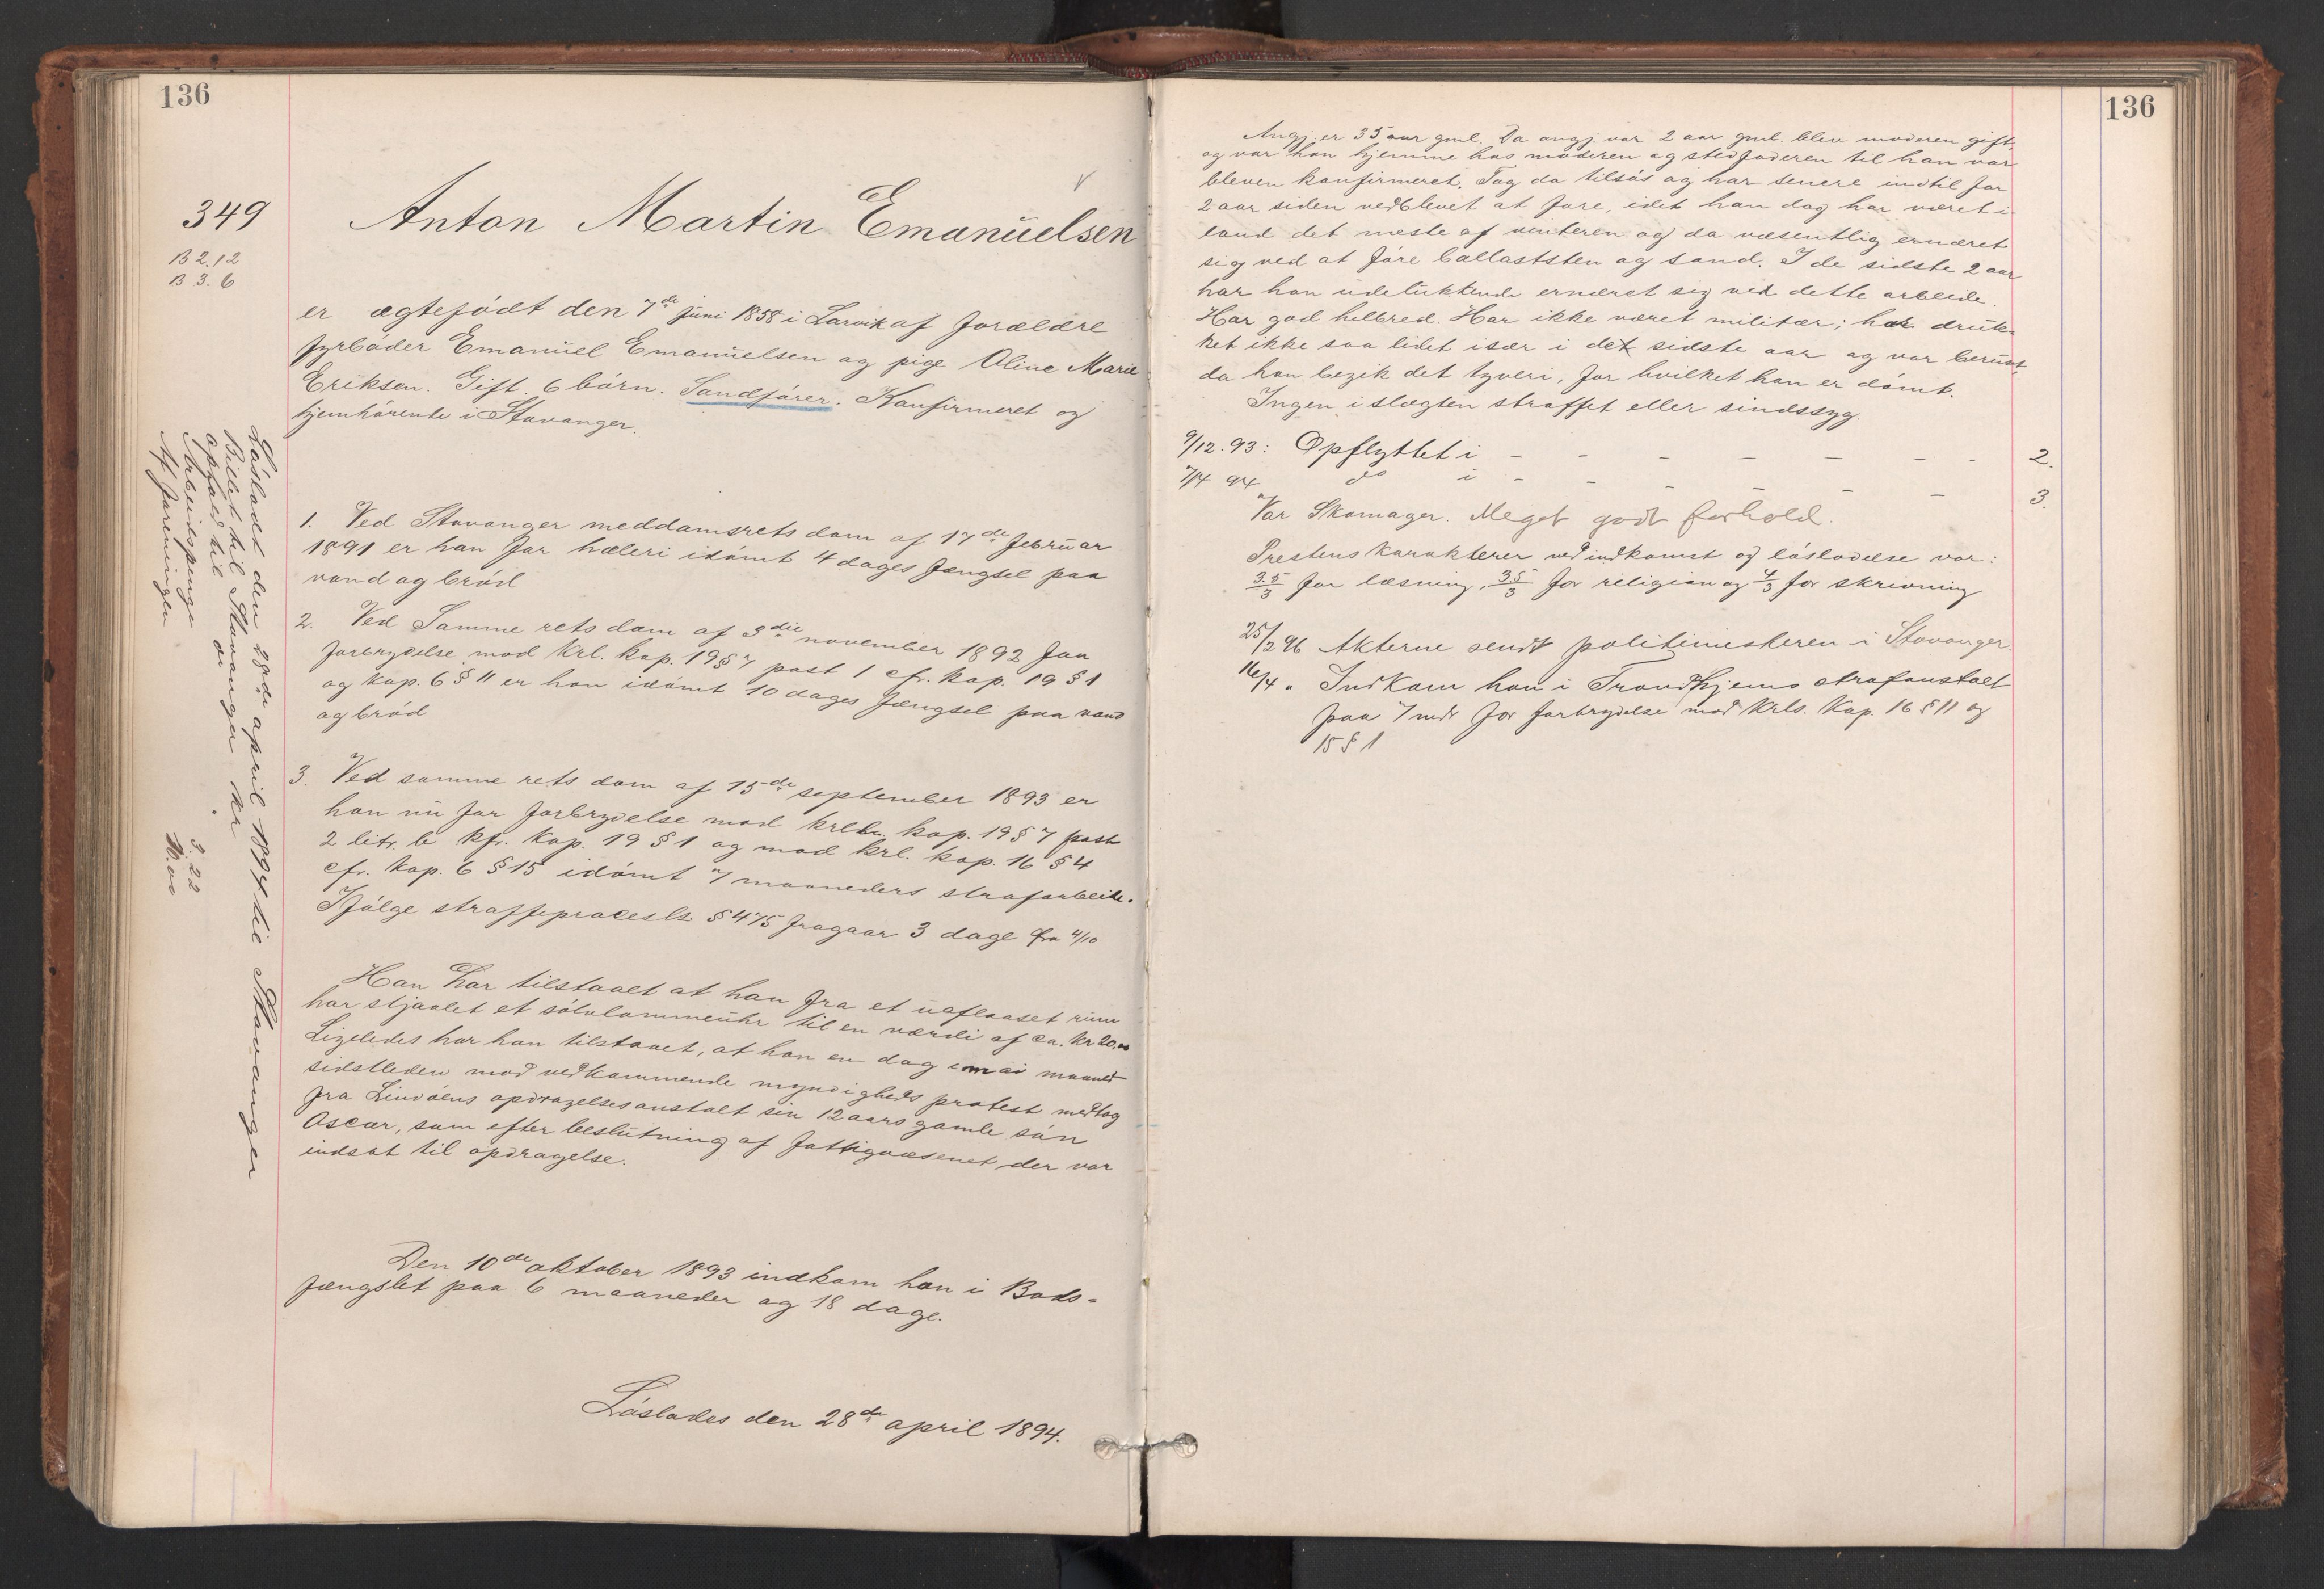 136
349
B 2.12
B 3.6
Anton Martin Emanuelsen
er ægtefødt den 7de juni 1858 i Larvik af forældre
fyrbøder Emanuel Emanuelsen og pige Oline Marie
Eriksen. Gift. 6 børn. Sandfører. Konfirmeret og
hjemhørende i Stavanger.
1. Ved Stavanger meddomsrets dom af 17de februar
1891 er han for hæleri idømt 4 dages fængsel paa
vand og brød
2. Ved Samme rets dom af 3die november 1892 for
forbrydelse mod krl. kap. 19 § 7 post 1 cfr. kap. 19 § 1
og kap. 6 § 11 er han idømt 10 dages fængsel paa vand
og brød
3. Ved samme rets dom af 15de september 1893 er
han nu for forbrydelse mod krl. kap. 19 § 7 post
2 litr. b kfr. kap. 19 § 1 og mod krl. kap. 16 § 4
cfr. kap. 6 § 15 idømt 7 maaneders strafarbeide.
Ifølge straffeprocesls. § 475 fragaar 3 dage fra 4/10
Han har tilstaaet at han fra et uaflaaset rum
har stjaalet et sølvlommeuhr til en værdi af ca. kr 20.00
Ligeledes har han tilstaaet, at han en dag i mai maaned
sidstleden mod vedkommende myndigheds protest medtog
fra Lindøens opdragelsesanstalt sin 12 aars gamle søn
Oscar, som efter beslutning af fattigvæsenet der var
indsat til opdragelse.
Den 10de oktober 1893 indkom han i Bods-
fængslet paa 6 maaneder og 18 dage.
Løslades den 28de april 1894.
Løsladt den 28de april 1894 til Stavanger
Billet til Stavanger kr
ophold til
Arbeidspenge 3.22
Af foreningen 10.00
136
Angj. er 35 aar gml. Da angj. var 2 aar gml. blev moderen gift,
og var han hjemme hos moderen og stedfaderen til han var
bleven konfirmeret. Tog da tilsøs og har senere indtil for
2 aar siden vedblevet at fare, idet han dog har været i
land det meste af vinteren og da væsentlig ernæret
sig ved at føre ballaststen og sand. I de sidste 2 aar
har han udelukkende ernæret sig ved dette arbeide.
Har god helbred. Har ikke været militær; har druk-
ket ikke saa lidet især i det sidste aar og var beruset,
da han begik det tyveri, for hvilket han er dømt.
Ingen i slægten straffet eller sindssyg.
9/12. 93: Opflyttet i - - - - - - - 2.
7/4 94 do i - - - - - - 3.
Var Skomager. Meget godt forhold.
Prestens karakterer ved indkomst og løsladelse var:
3.5/3 for læsning, 3.5/3 for religion og 4/3 for skrivning
25/2 96 Akterne sendt politimesteren i Stavanger.
16/4 " Indkom han i Trondhjems strafanstalt
paa 7 mdr for forbrydelse mod krls. kap. 16 § 11 og
15 § 1